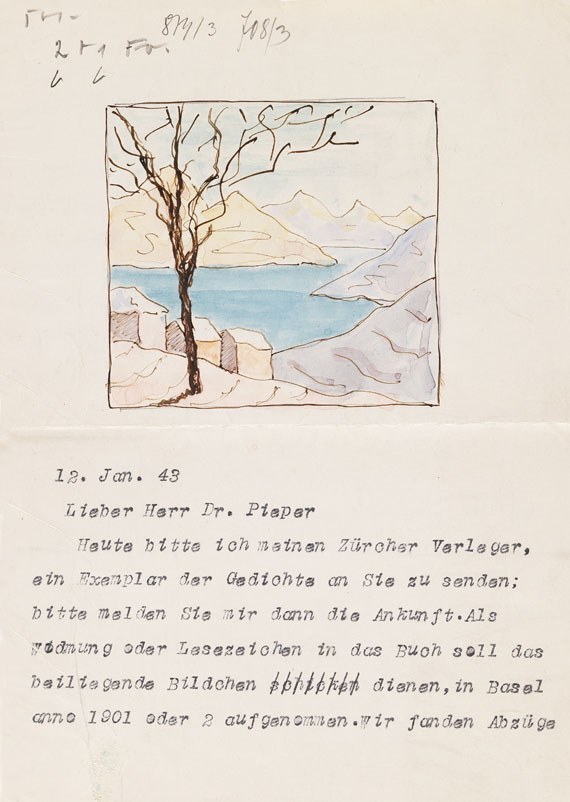 874/3 708/3
12. Jan. 43
Lieber Herr Dr. Pieper
Heute bitte ich meinen Zürcher Verleger,
ein Exemplar der Gedichte an Sie zu senden;
bitte melden Sie mir dann die Ankunft.Als
widmung oder Lesezeichen in das Buch soll das
beiliegende Bildchen schicken dienen,in Basel
anno 1901 oder 2 aufgenommen.wir fanden Abzüge